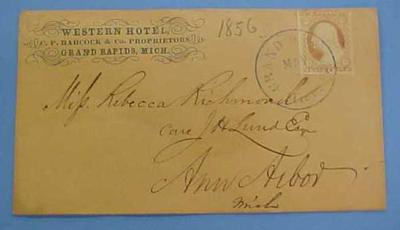 WESTERN HOTEL,
C. P. BABCOCK & Co. PROPRIETORS
GRAND RAPIDS, MICH.
1856
GRAND
Miss Rebecca Richmond
Care J H Lund Esq
Ann Arbor
Mich